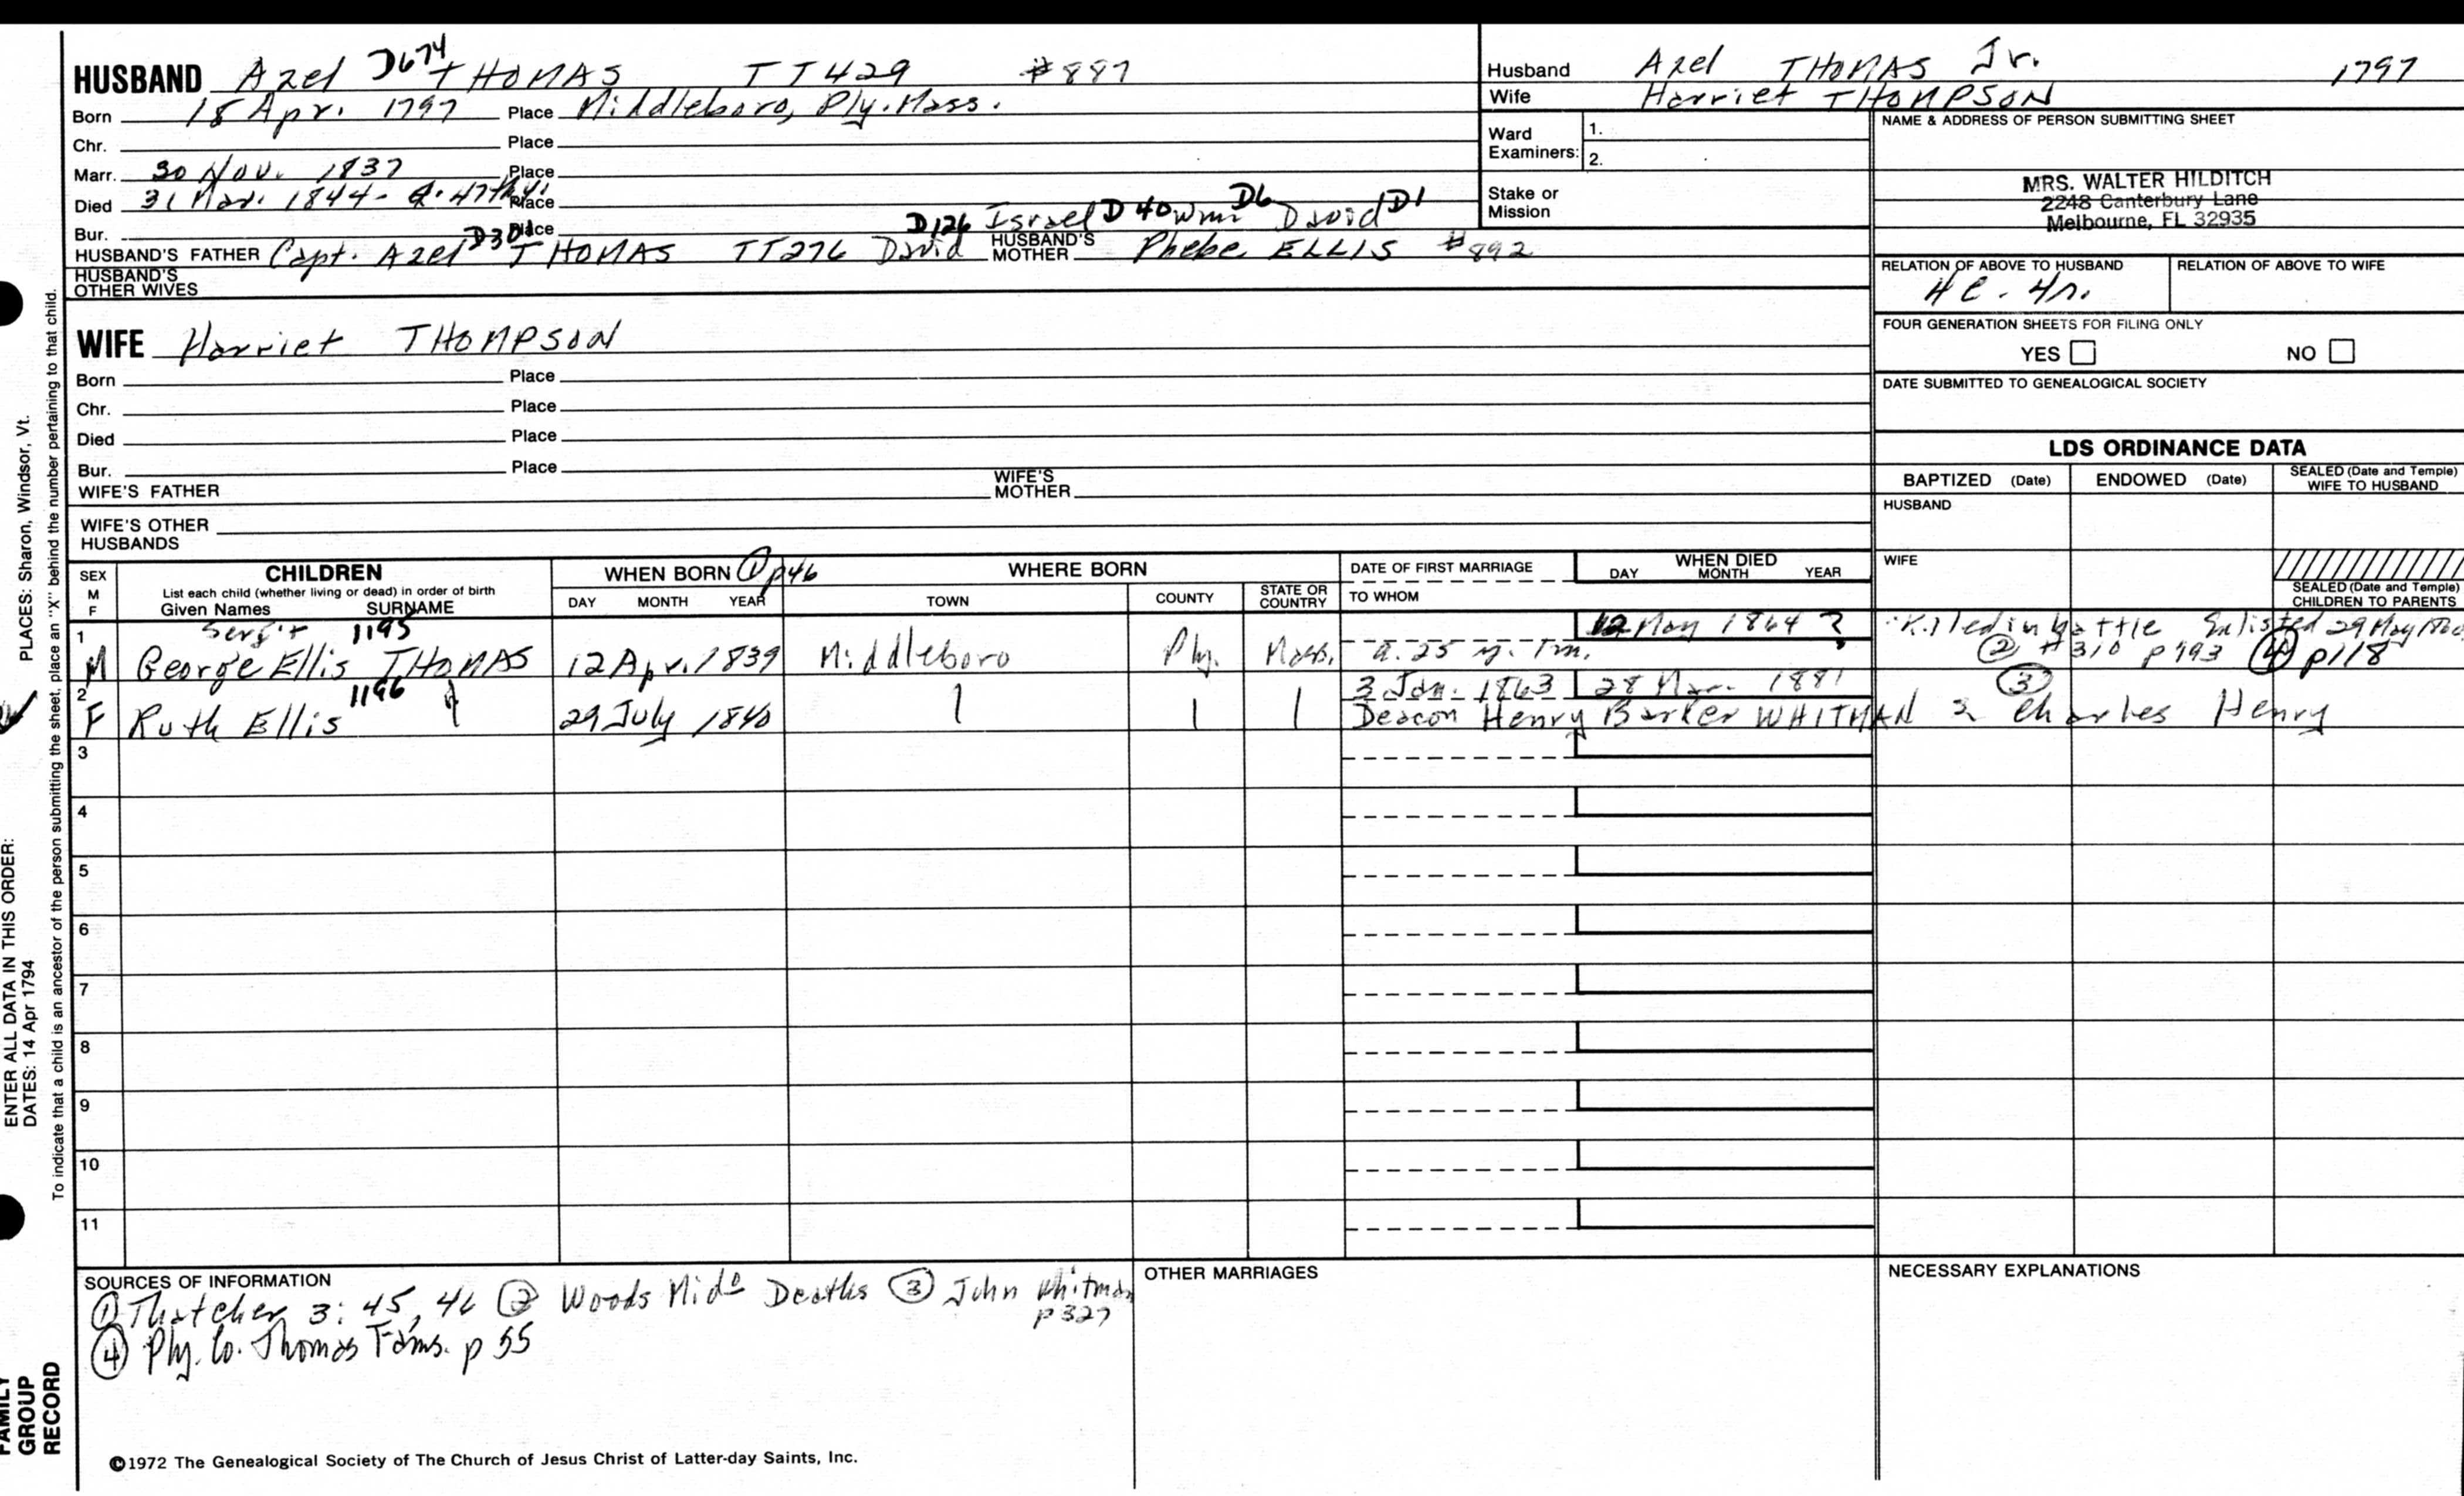 HUSBAND Azel D674 THOMAS TT429 #887
Born 18 Apr. 1797 Place Middleboro, Ply. Mass.
Chr. Place
Marr. 30 Nov. 1837 Place
Died 31 Mar. 1844 - a. 47th y. Place
Bur. Place D126 Israel D40 Wm D6 David D1
HUSBAND'S FATHER Capt. Azel D301 THOMAS TT276 David HUSBAND'S MOTHER Phebe ELLIS #892
HUSBAND'S OTHER WIVES
WIFE Harriet THOMPSON
Born Place
Chr. Place
Died Place
Bur. Place
WIFE'S FATHER WIFE'S MOTHER
WIFE'S OTHER HUSBANDS
Husband Azel THOMAS Jr. 1797
Wife Harriet THOMPSON
Ward Examiners: 1.
2.
Stake or Mission
NAME & ADDRESS OF PERSON SUBMITTING SHEET
MRS. WALTER HILDITCH
2248 Canterbury Lane
Melbourne, FL 32935
RELATION OF ABOVE TO HUSBAND RELATION OF ABOVE TO WIFE
FOUR GENERATION SHEETS FOR FILING ONLY
YES NO
DATE SUBMITTED TO GENEALOGICAL SOCIETY
LDS ORDINANCE DATA
BAPTIZED (Date) ENDOWED (Date) SEALED (Date and Temple) WIFE TO HUSBAND
HUSBAND
WIFE
SEALED (Date and Temple) CHILDREN TO PARENTS
SEX M F
CHILDREN
List each child (whether living or dead) in order of birth
Given Names SURNAME
WHEN BORN ① p46
DAY MONTH YEAR
WHERE BORN
TOWN COUNTY STATE OR COUNTRY
DATE OF FIRST MARRIAGE
TO WHOM
WHEN DIED
DAY MONTH YEAR
1 Serg't 1195 12 May 1864 ? Killed in battle Enlisted 29 May
M George Ellis THOMAS 12 Apr. 1839 Middleboro Ply. Mass. a. 25 y. 1 m. ② #310 p193 ④ p118
2 1196 3 Jan. 1863 28 Mar. 1881 ③
F Ruth Ellis 29 July 1840 Deacon Henry Barker WHITMAN Charles Henry
3
4
5
6
7
8
9
10
11
SOURCES OF INFORMATION
① Thatcher 3: 45, 46 ② Woods Mido Deaths ③ John Whitman p327
④ Ply. Co. Thomas Fams. p 55
OTHER MARRIAGES
NECESSARY EXPLANATIONS
©1972 The Genealogical Society of The Church of Jesus Christ of Latter-day Saints, Inc.
PLACES: Sharon, Windsor, Vt.
To indicate that a child is an ancestor of the person submitting the sheet, place an "X" behind the number pertaining to that child.
ENTER ALL DATA IN THIS ORDER:
DATES: 14 Apr 1794
FAMILY GROUP RECORD